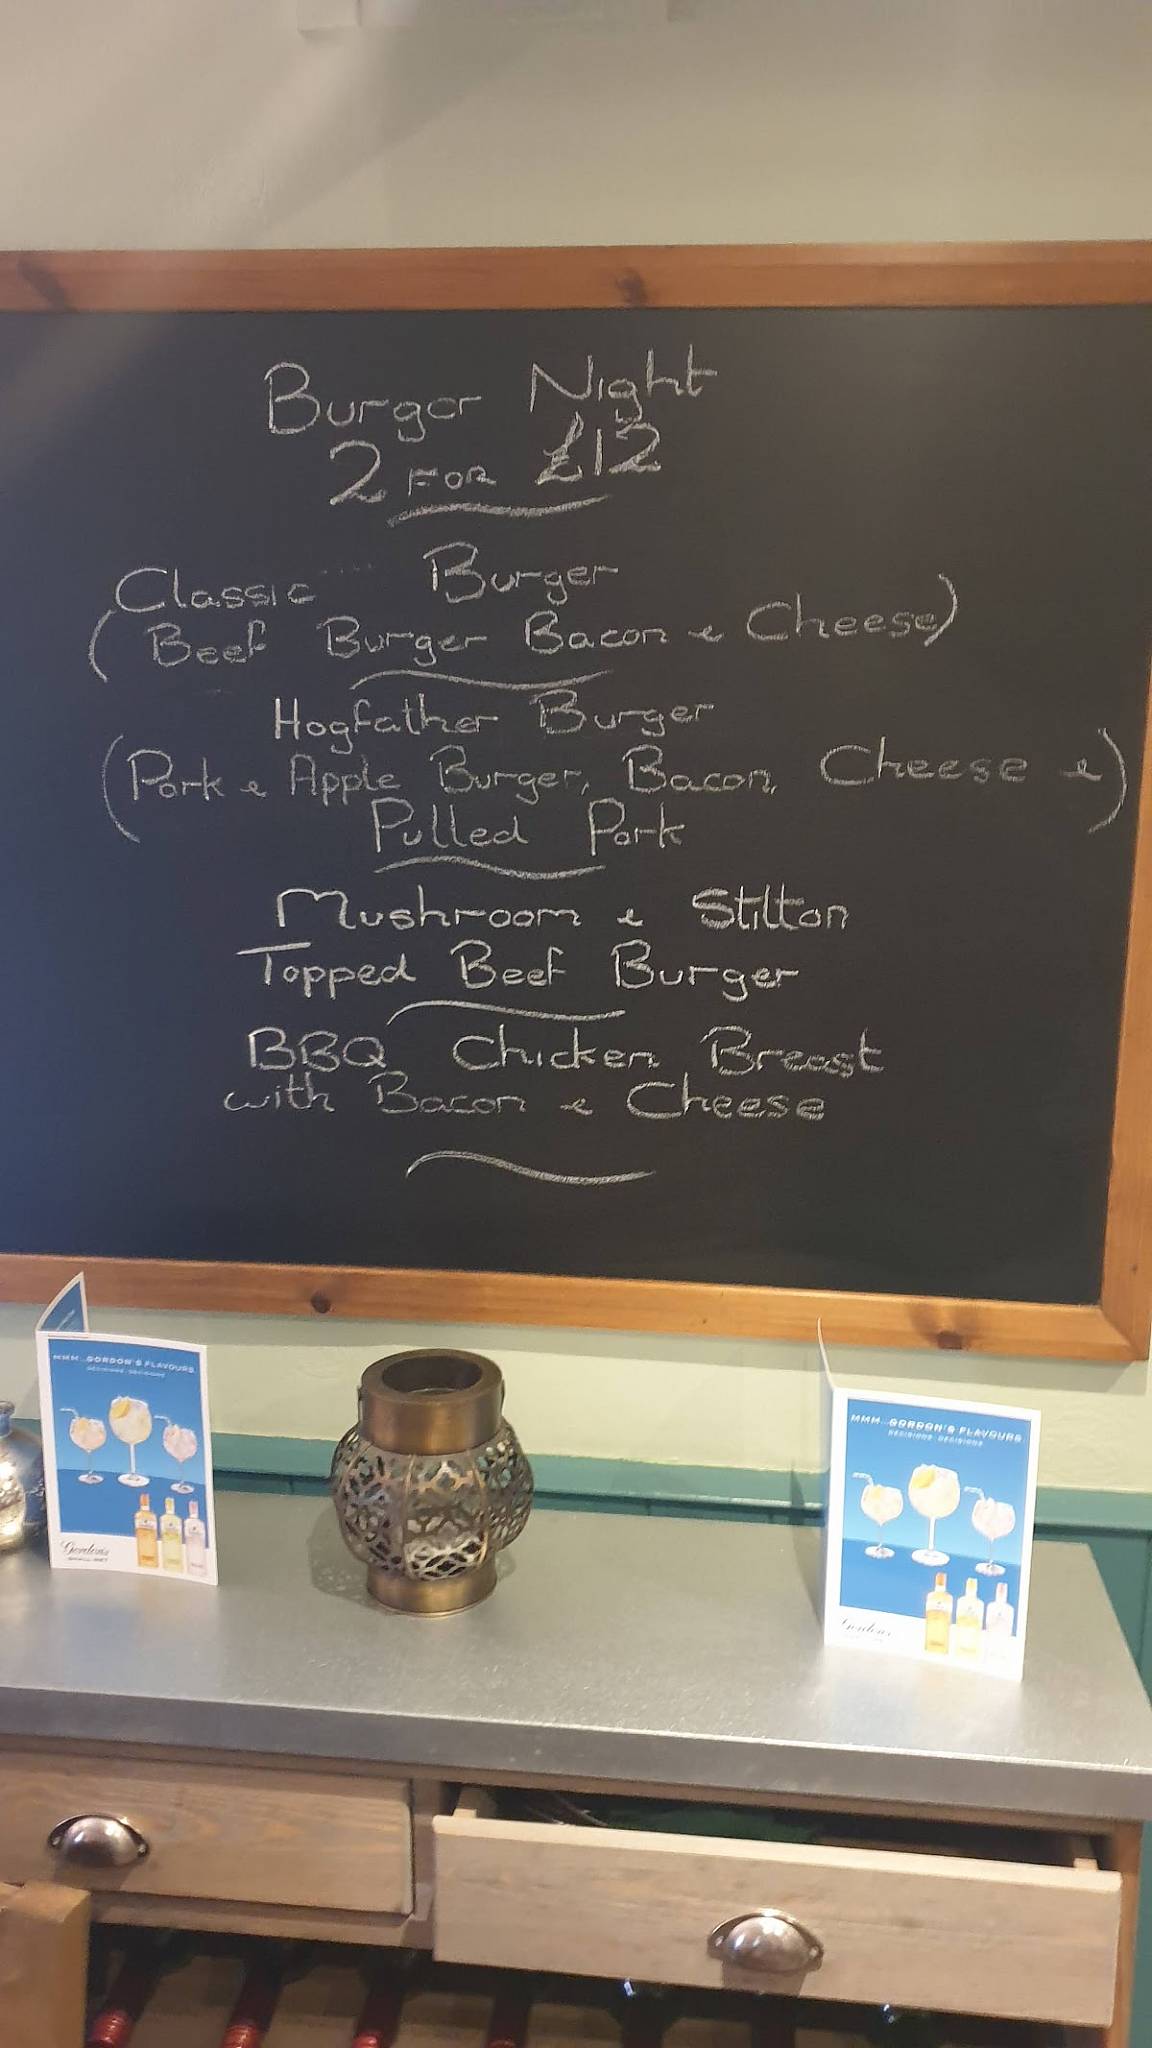 Burger Night
2 FOR £12
Classic Burger
(Beef Burger Bacon & Cheese)
Hogfather Burger
(Pork & Apple Burger, Bacon, Cheese &
Pulled Pork)
Mushroom & Stilton
Topped Beef Burger
BBQ Chicken Breast
with Bacon & Cheese
MMM...GORDON'S FLAVOURS
DECISIONS DECISIONS
Gordon's
MMM...GORDON'S FLAVOURS
DECISIONS DECISIONS
Gordon's